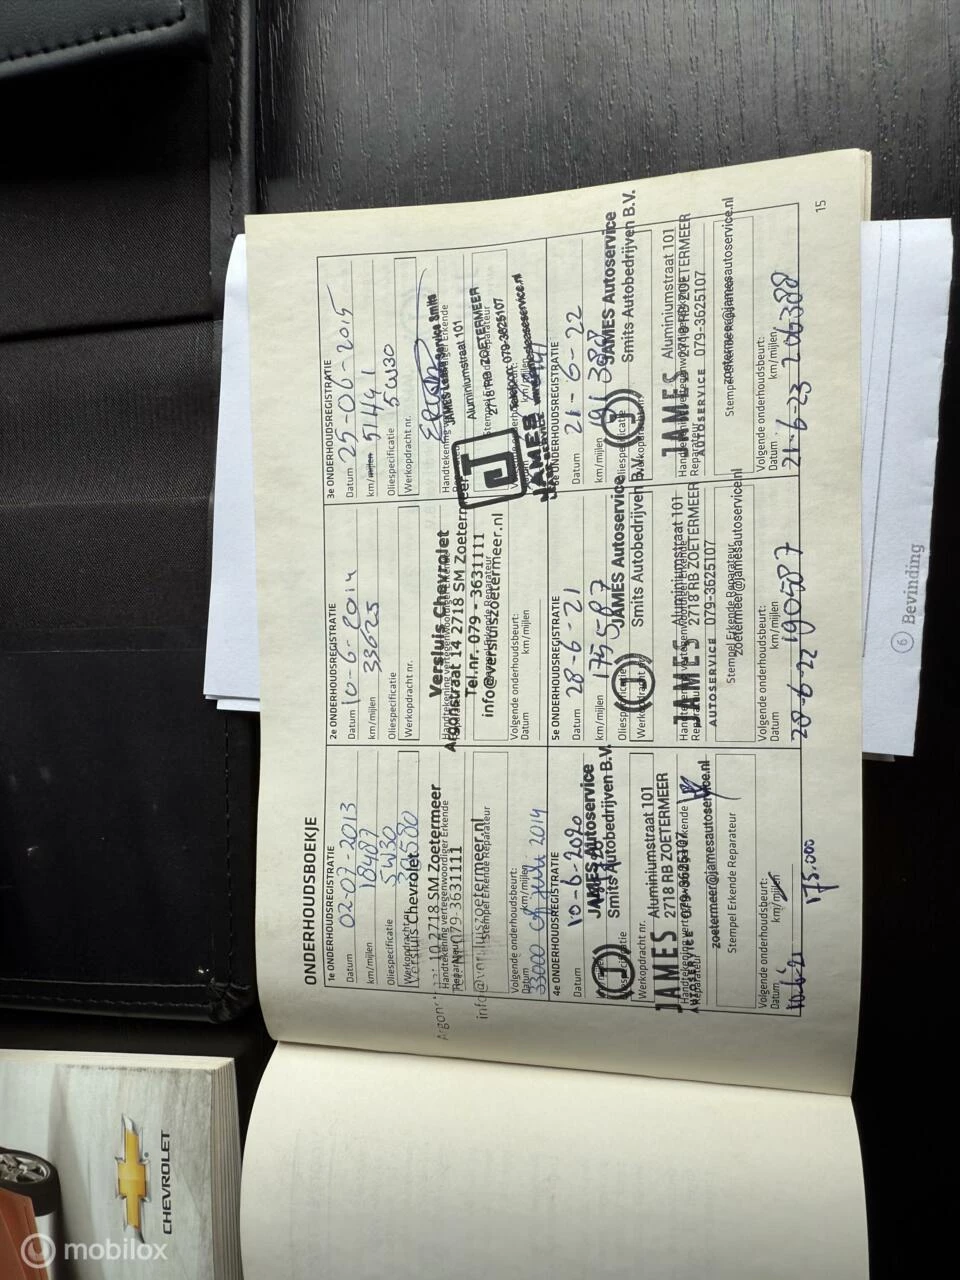 ONDERHOUDSBOEKJE
1e ONDERHOUDSREGISTRATIE
Datum 02-07-2013
km/mijlen 18487
Oliespecificatie 5W30
Werkopdracht nr.
Versluis Chevrolet
2718 SM Zoetermeer
Handtekening vertegenwoordiger Erkende
Reparateur
079-3631111
Stempel Erkende Reparateur
info@versluiszoetermeer.nl
Volgende onderhoudsbeurt:
Datum km/mijlen
33000 of juli 2014
2e ONDERHOUDSREGISTRATIE
Datum 10-6-2014
km/mijlen 33625
Oliespecificatie
Werkopdracht nr.
Versluis Chevrolet
Handtekening vertegenwoordiger Erkende
Argonstraat 14 2718 SM Zoetermeer
Tel.nr. 079 - 3631111
Stempel Erkende Reparateur
info@versluiszoetermeer.nl
Volgende onderhoudsbeurt:
Datum km/mijlen
3e ONDERHOUDSREGISTRATIE
Datum 25-06-2015
km/mijlen 51441
Oliespecificatie 5W30
Werkopdracht nr.
Handtekening
Erkende
Aluminiumstraat 101
2718 RB ZOETERMEER
079-3625107
J
JAMES
4e ONDERHOUDSREGISTRATIE
Datum 10-6-2020
JAMES Autoservice
Smits Autobedrijven B.V.
(J)
Werkopdracht nr.
Aluminiumstraat 101
2718 RB ZOETERMEER
JAMES
AUTOSERVICE
Handtekening vertegenwoordiger Erkende
Reparateur
079-3625107
zoetermeer@jamesautoservice.nl
Stempel Erkende Reparateur
Volgende onderhoudsbeurt:
Datum km/mijlen
175.000
5e ONDERHOUDSREGISTRATIE
Datum 28-6-21
km/mijlen 175587
Oliespecificatie
JAMES Autoservice
Werkopdracht nr.
Smits Autobedrijven B.V.
(J)
JAMES
AUTOSERVICE
Aluminiumstraat 101
Handtekening vertegenwoordiger Erkende
2718 RB ZOETERMEER
079-3625107
Stempel Erkende Reparateur
zoetermeer@jamesautoservice.nl
Volgende onderhoudsbeurt:
Datum km/mijlen
28-6-22 190587
6e ONDERHOUDSREGISTRATIE
Datum 21-6-22
km/mijlen 191388
Oliespecificatie
JAMES Autoservice
Werkopdracht nr.
Smits Autobedrijven B.V.
(J)
JAMES
AUTOSERVICE
Aluminiumstraat 101
Handtekening vertegenwoordiger Erkende
2718 RB ZOETERMEER
Reparateur
079-3625107
Stempel Erkende Reparateur
zoetermeer@jamesautoservice.nl
Volgende onderhoudsbeurt:
Datum km/mijlen
21-6-23 206388
15
6 Bevinding
CHEVROLET
mobilox